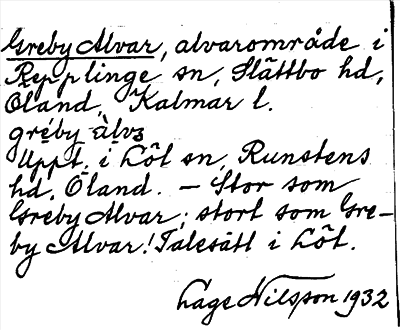 Greby Alvar, alvarområde i
Repplinge sn, Slättbo hd,
Öland, Kalmar l.
gréby àlvɜ
Uppt. i Löt sn, Runstens
hd, Öland. – Stor som
Greby Alvar; stort som Gre-
by Alvar! Talesätt i Löt.
Lage Nilsson 1932